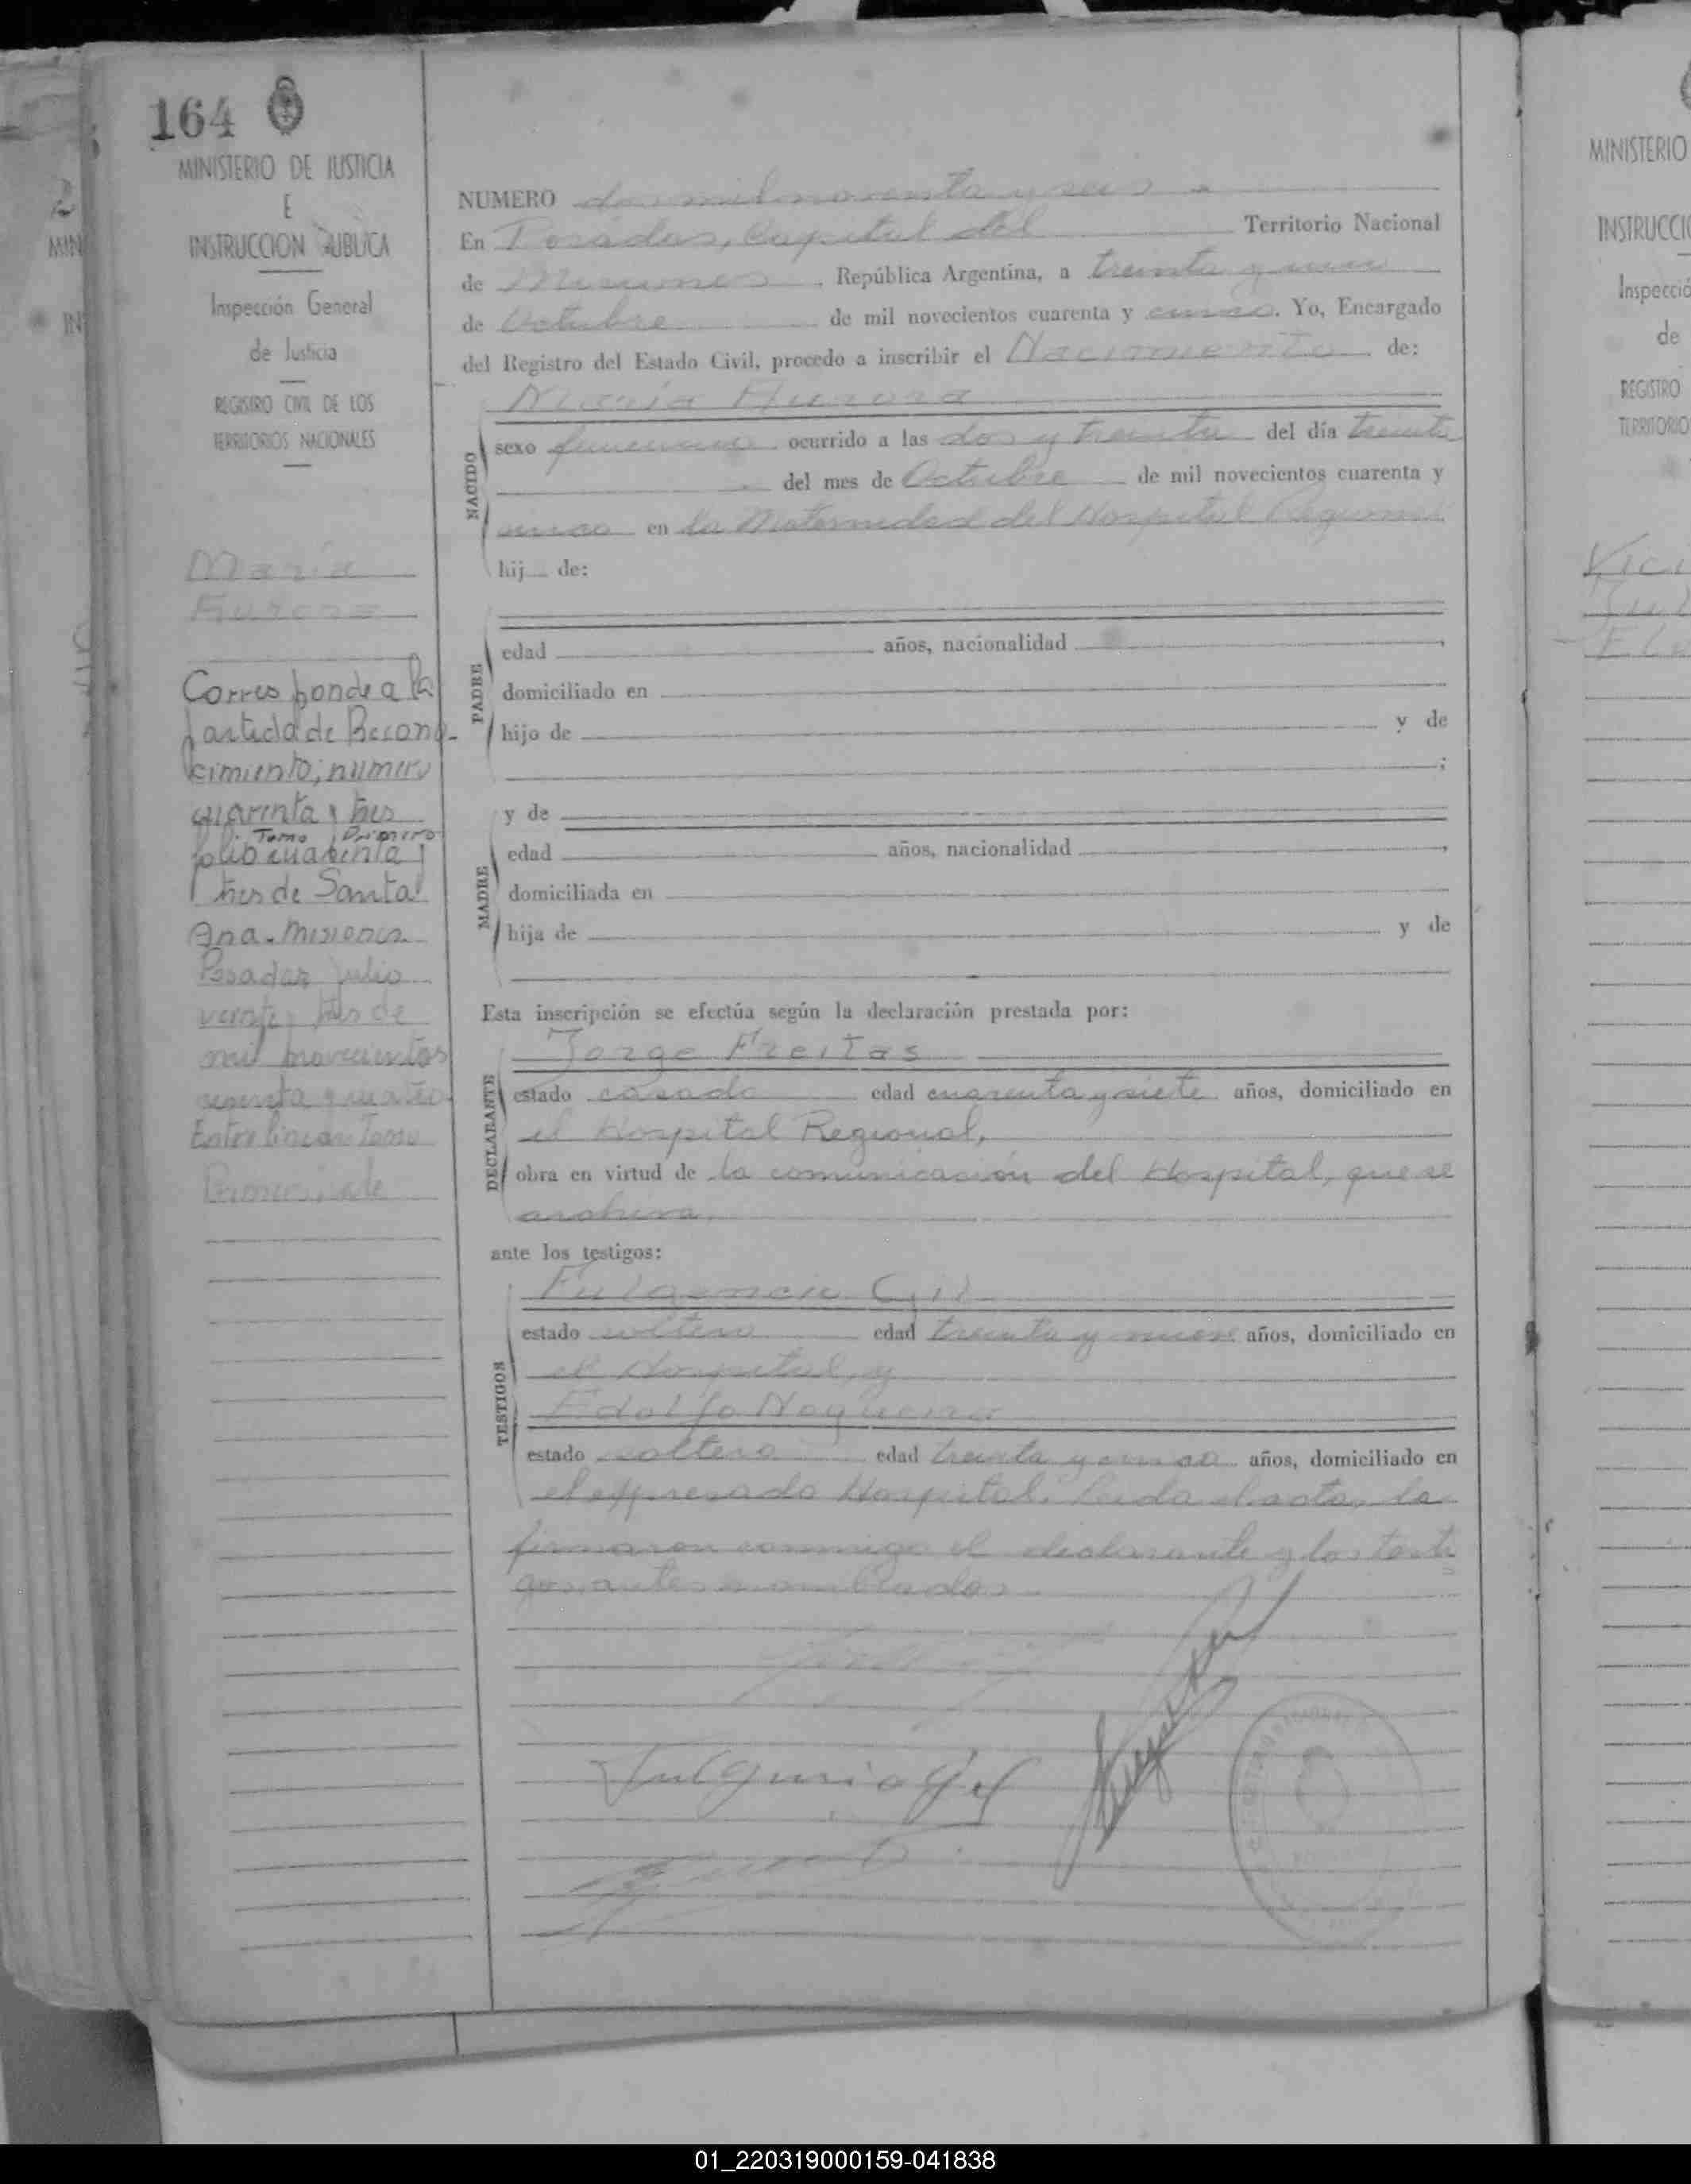 164
MINISTERIO DE JUSTICIA
E
INSTRUCCION PUBLICA
Inspección General
de Justicia
REGISTRO CIVIL DE LOS
TERRITORIOS NACIONALES
María
Aurora
Corresponde a la
partida de Recono-
cimiento, numero
cuarenta y tres
Tomo Primero
folio cuarenta y
tres de Santa
Ana - Misiones
Posadas Julio
veinte y tres de
mil novecientos
sesenta y cuatro
Entre lineas: Tomo
Primero, vale
NUMERO dos mil noventa y seis
En Posadas, Capital del Territorio Nacional
de Misiones, República Argentina, a treinta y uno
de Octubre de mil novecientos cuarenta y cinco. Yo, Encargado
del Registro del Estado Civil, procedo a inscribir el Nacimiento de:
María Aurora
NACIDO
sexo femenino ocurrido a las dos y treinta del día treinta
del mes de Octubre de mil novecientos cuarenta y
cinco en la Maternidad del Hospital Regional
hij de:
PADRE
edad años, nacionalidad ,
domiciliado en
hijo de y de
;
y de
MADRE
edad años, nacionalidad ,
domiciliada en
hija de y de
Esta inscripción se efectúa según la declaración prestada por:
Jorge Freitas
DECLARANTE
estado casado edad cuarenta y siete años, domiciliado en
el Hospital Regional,
obra en virtud de la comunicasión del Hospital, que se
archiva,
ante los testigos:
Fulgencio Gil
TESTIGOS
estado soltero edad treinta y nueve años, domiciliado en
el Hospital, y
Edolfo Nogueira
estado soltero edad treinta y cinco años, domiciliado en
el expresado Hospital. Leida el acta, la
firmaron conmigo el declarante y los testi
gos antes nombrados.
Fulgencio Gil
MINISTERIO
INSTRUCCI
Inspecció
de
REGISTRO
TERRITORIO
01_220319000159-041838